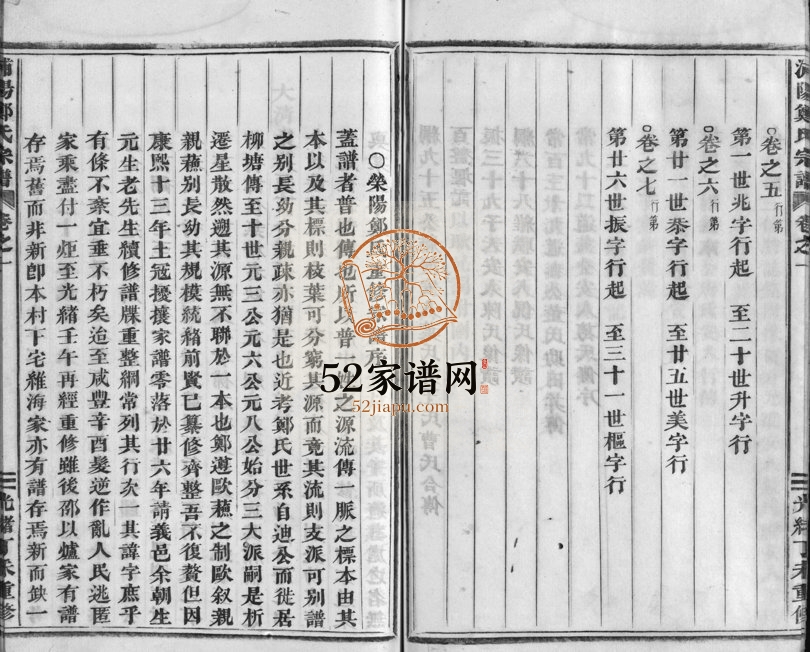 浦陽鄭氏宗譜 卷之一 光緒丁未重修
卷之五 行第
第一世兆字行起 至二十世升字行
卷之六 行第
第廿一世恭字行起 至廿五世美字行
卷之七 行第
第廿六世振字行起 至三十一世樞字行
滎陽鄭氏重修宗譜序
蓋譜者普也傳也所以普一姓之源流傳一脈之標本由其
本以及其標則枝葉可分窮其源而竟其流則支派可別譜
之別長幼分親疎亦猶是也近考鄭氏世系自迪公而徙居
柳塘傳至十世元三公元六公元八公始分三大派嗣是析
遷星散然遡其源無不聯於一本也鄭遵歐蘇之制歐叙親
親蘇別長幼其規模統緒前賢已纂修齊整吾不復贅但因
康熙十三年土冠擾攘家譜零落於廿六年請義邑余朝生
元生老先生續修譜牒重整綱常列其行次一其諱字庶乎
有條不棄宜垂不朽矣迨至咸豐辛酉髮逆作亂人民逃匿
家乘盡付一炬至光緒壬午再經重修雖後邵以爐家有譜
存焉舊而非新卽本村下宅維海家亦有譜存焉新而缺一
浦陽鄭氏宗譜 卷之一 光緒丁未重修
52家谱网
52jiapu.com